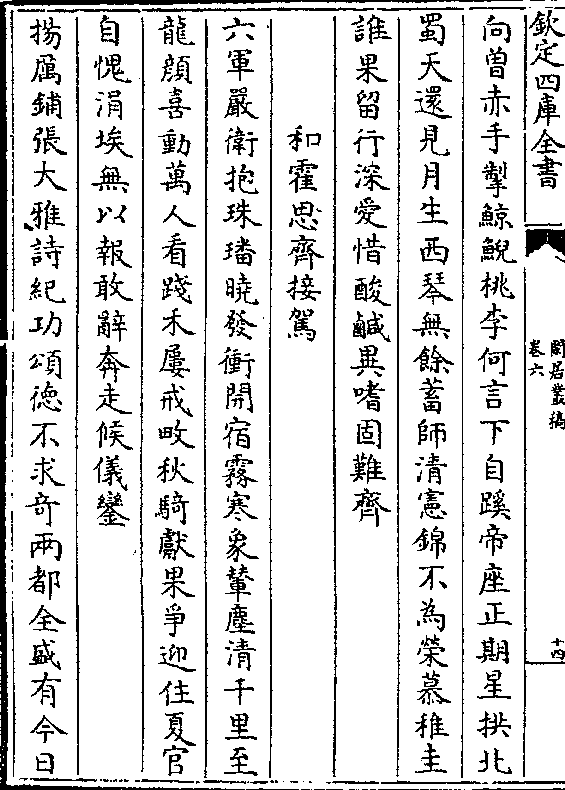 欽定四庫全書
閒居叢稿
卷六
十四
向曽赤手掣鯨鯢桃李何言下自蹊帝座正期星拱北
蜀天還見月生西琴無餘蓄師清憲錦不為榮慕稚圭
誰果留行深愛惜酸鹹異嗜固難齊
和霍思齊接駕
六軍嚴衛抱珠璠曉發衝開宿霧寒象輦塵清千里至
龍顔喜動萬人看踐禾屢戒畋秋騎獻果爭迎住夏官
自愧涓埃無以報敢辭奔走候儀鑾
揚厲鋪張大雅詩紀功頌徳不求竒兩都全盛有今日